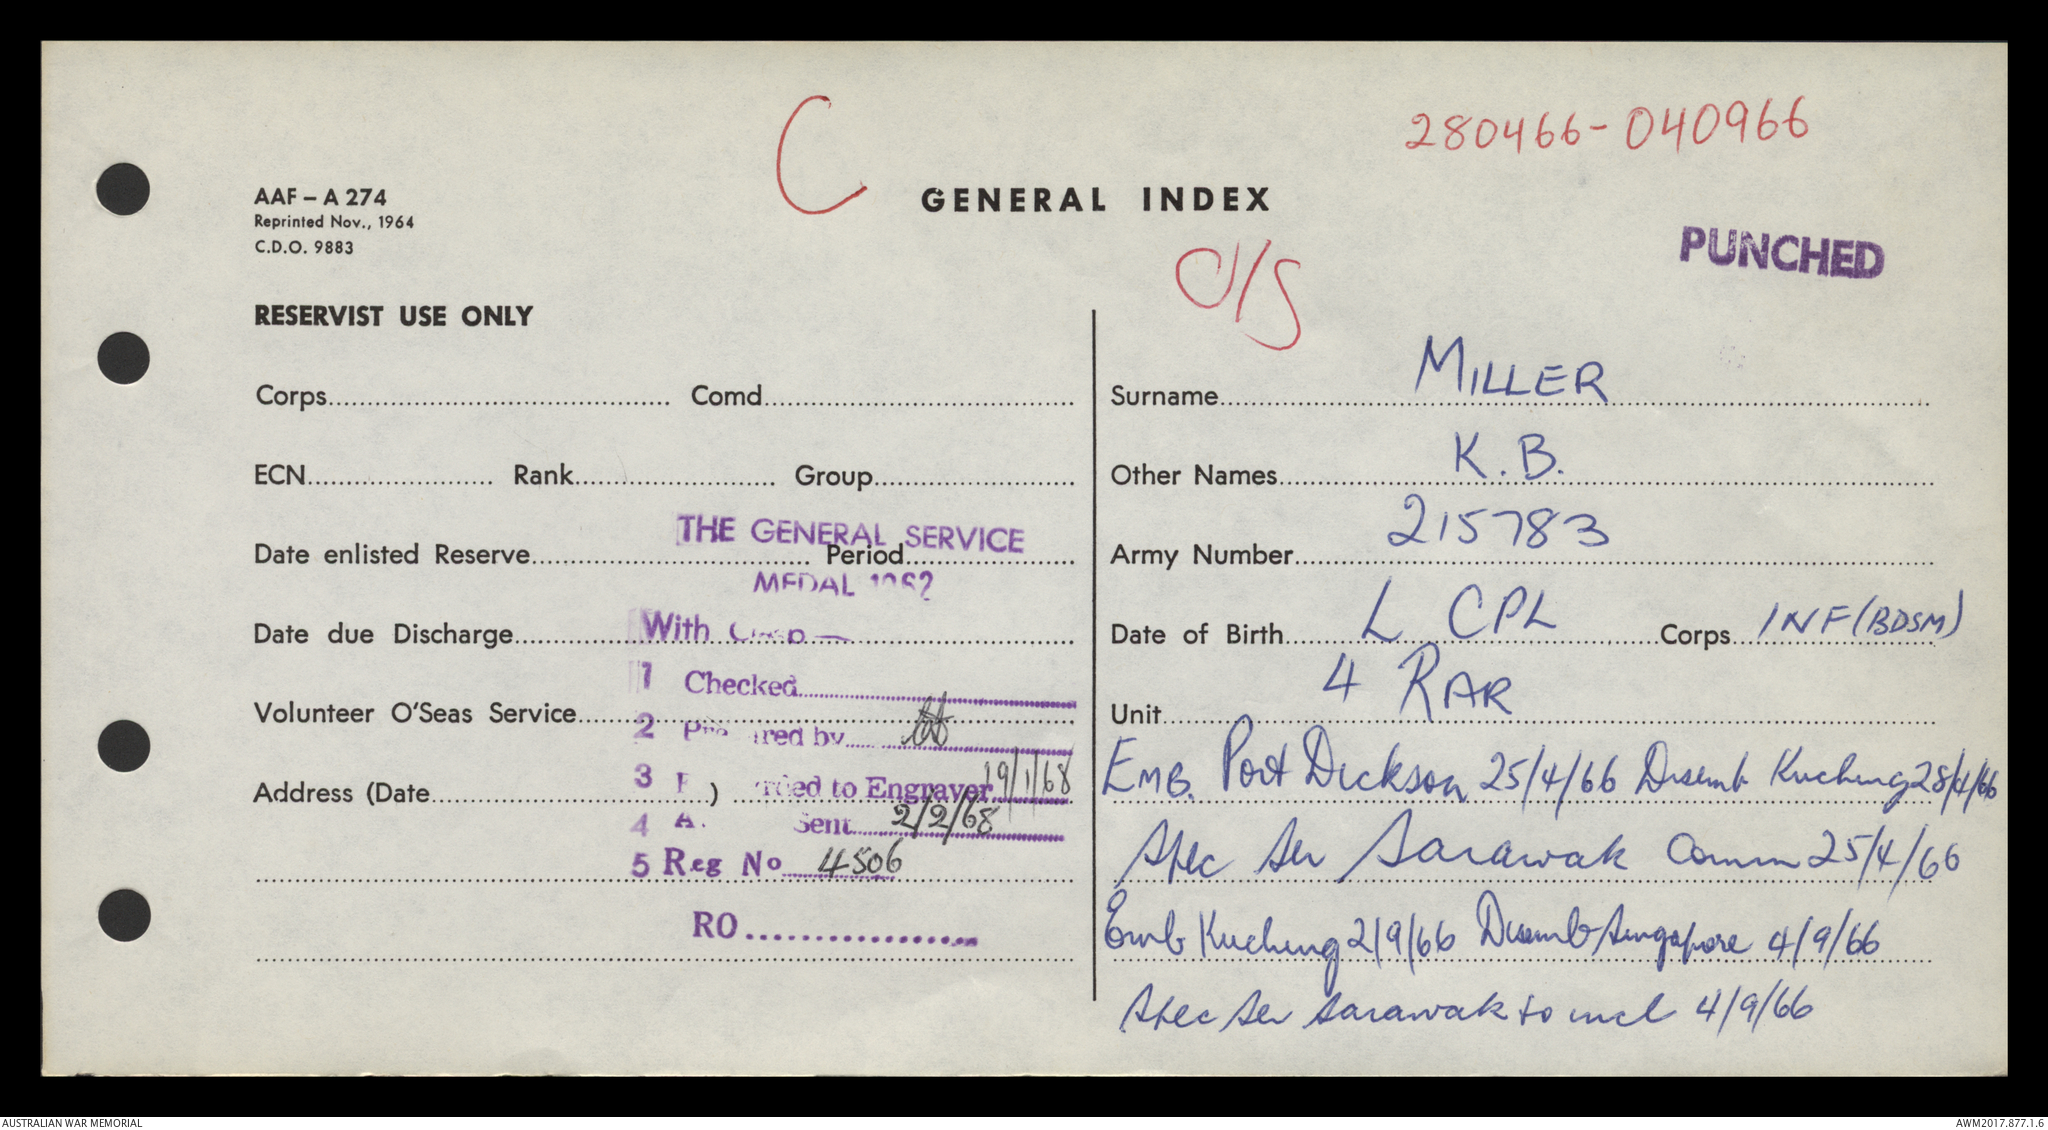 C
280466-040966
AAF – A 274
Reprinted Nov., 1964
C.D.O. 9883
GENERAL INDEX
O/S
PUNCHED
RESERVIST USE ONLY
Corps Comd
ECN Rank Group
Date enlisted Reserve Period
THE GENERAL SERVICE
MEDAL 1962
Date due Discharge
With Clasp
1 Checked
Volunteer O'Seas Service
2 Prepared by
Address (Date )
3 Forwarded to Engraver 19/1/68
4 Sent 2/2/68
5 Reg No 4506
RO
Surname MILLER
Other Names K.B.
Army Number 215783
Date of Birth L CPL Corps INF (BDSM)
Unit 4 RAR
Emb. Port Dickson 25/4/66 Disemb Kuching 28/4/66
Spec Ser Sarawak Comm 25/4/66
Emb Kuching 2/9/66 Disemb Singapore 4/9/66
Spec Ser Sarawak to incl 4/9/66
AUSTRALIAN WAR MEMORIAL
AWM2017.877.1.6